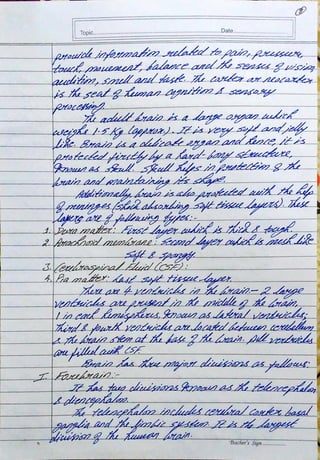 8
Topic
Date
provide information related to pain, pressure,
touch, movement, balance and the senses of vision,
audition, smell and taste. The cortex or neocortex
is the seat of human cognition & sensory
processing.
The adult brain is a large organ which
weighs 1.5 Kg (approx). It is very soft and jelly
like. Brain is a delicate organ and hence, it is
protected firstly by a hard bony structure,
known as skull. Skull helps in protection of the
brain and maintaining its shape.
Additionally, brain is also protected with the help
of meninges (shock absorbing soft tissue layers). These
layers are of following types:-
1. Dura matter: First layer which is thick & tough.
2. Arachnoid membrane: Second layer which is mesh like
soft & spongy
3. Cerebrospinal Fluid (CSF):
4. Pia matter: Last soft tissue layer.
There are 4 ventricles in the brain - 2 large
ventricles are present in the middle of the brain,
1 in each hemispheres known as lateral ventricles;
third & fourth ventricles are located between cerebellum
& the brain stem at the base of the brain. All ventricles
are filled with CSF.
Brain has three major divisions as follows:
I. Forebrain:-
It has two divisions known as the telencephalon
& diencephalon.
The telencephalon includes cerebral cortex, basal
ganglia and the limbic system. It is the largest
division of the human brain.
Teacher's Sign